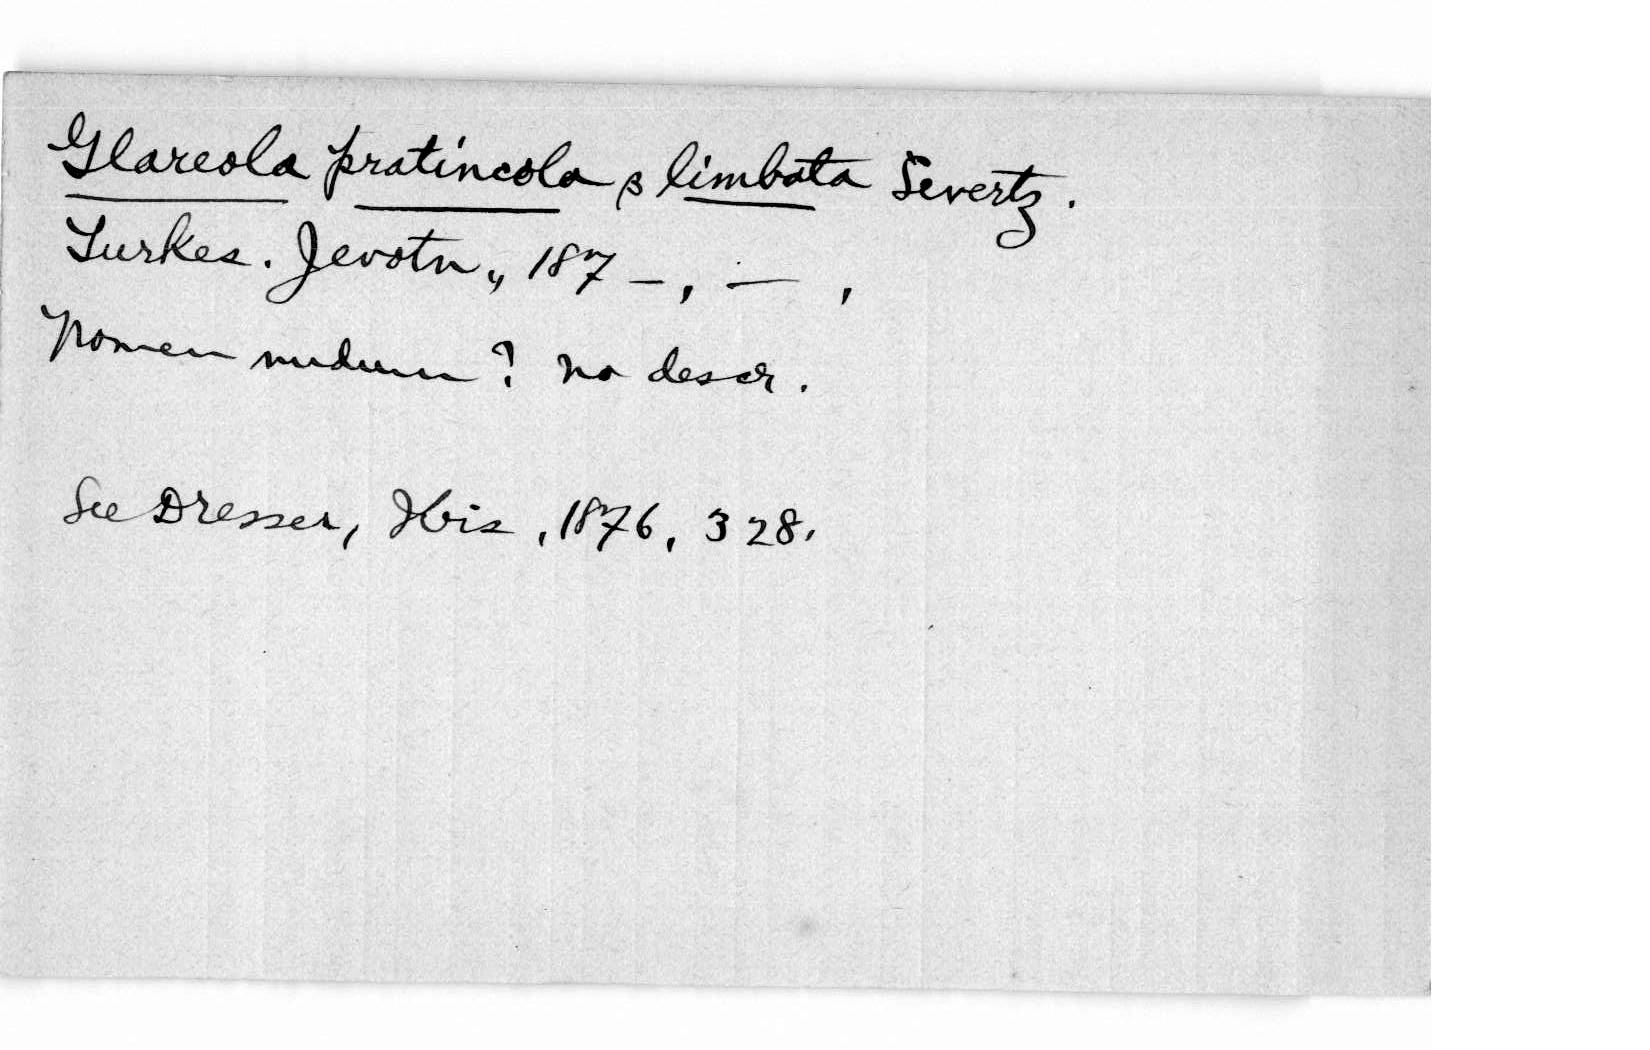 Glareola pratincola β limbata Severtz.
Turkes. Jevotn., 187 –, — ,
Nomen nudum? no descr.
See Dresser, Ibis, 1876, 328.